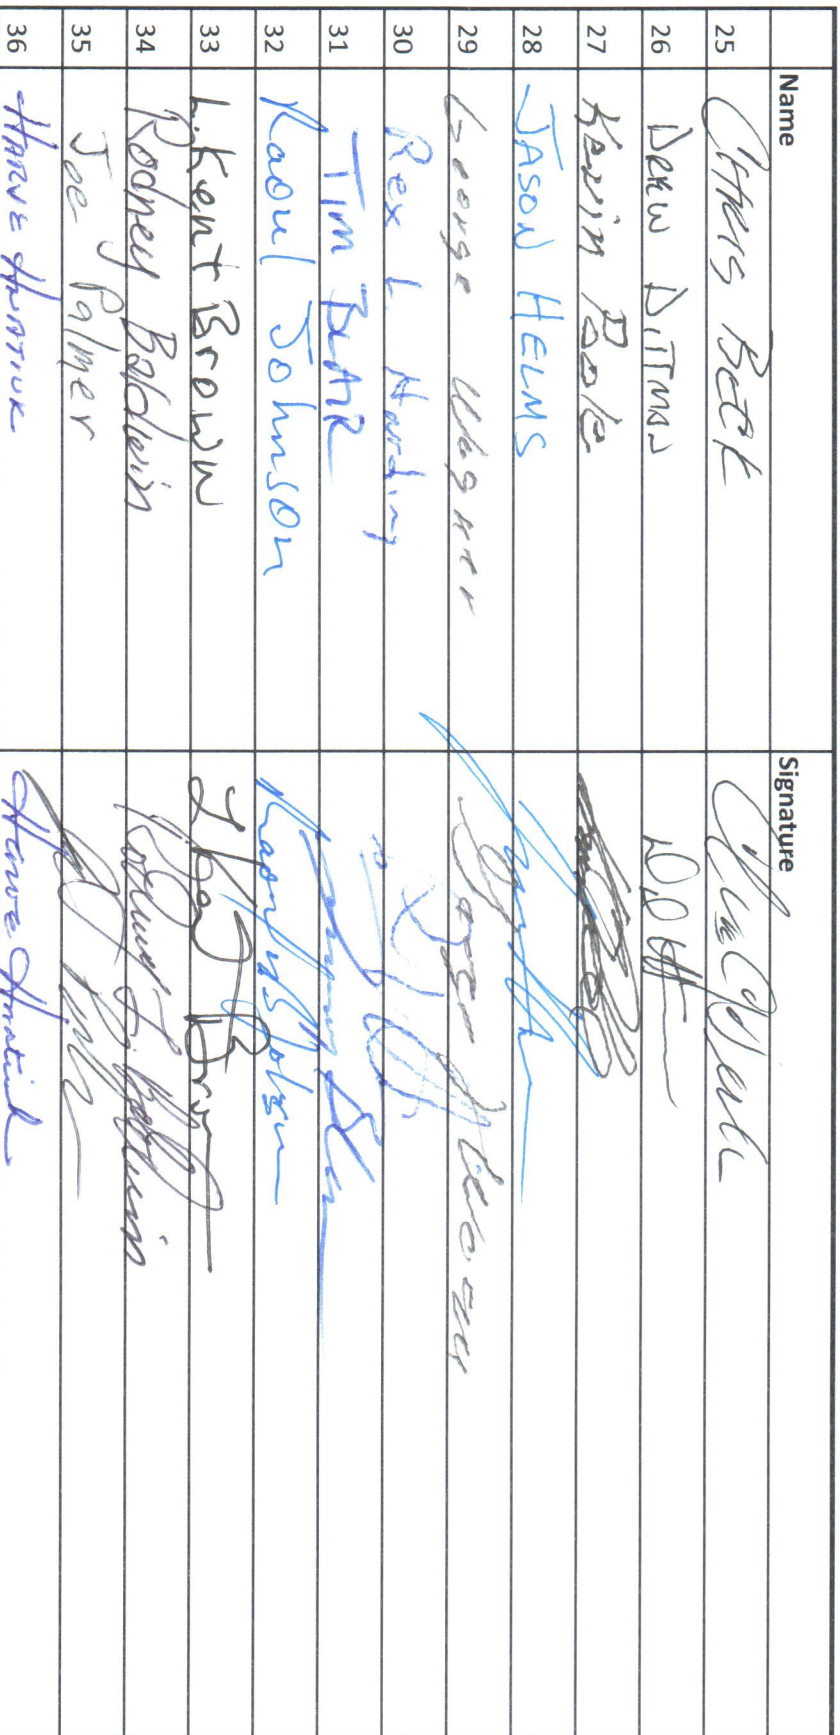 Name Signature
25 CHRIS BECK
26 DREW DITTMAN
27 Kevin Poole
28 JASON HELMS
29 George Wagner
30 Rex L. Harding
31 Tim BLAIR
32 Raoul Johnson
33 L. Kent Brown L Kent Brown
34 Rodney Baldwin Rodney J. Baldwin
35 Joe Palmer
36 HARVE HNATIUK Harve Hnatiuk